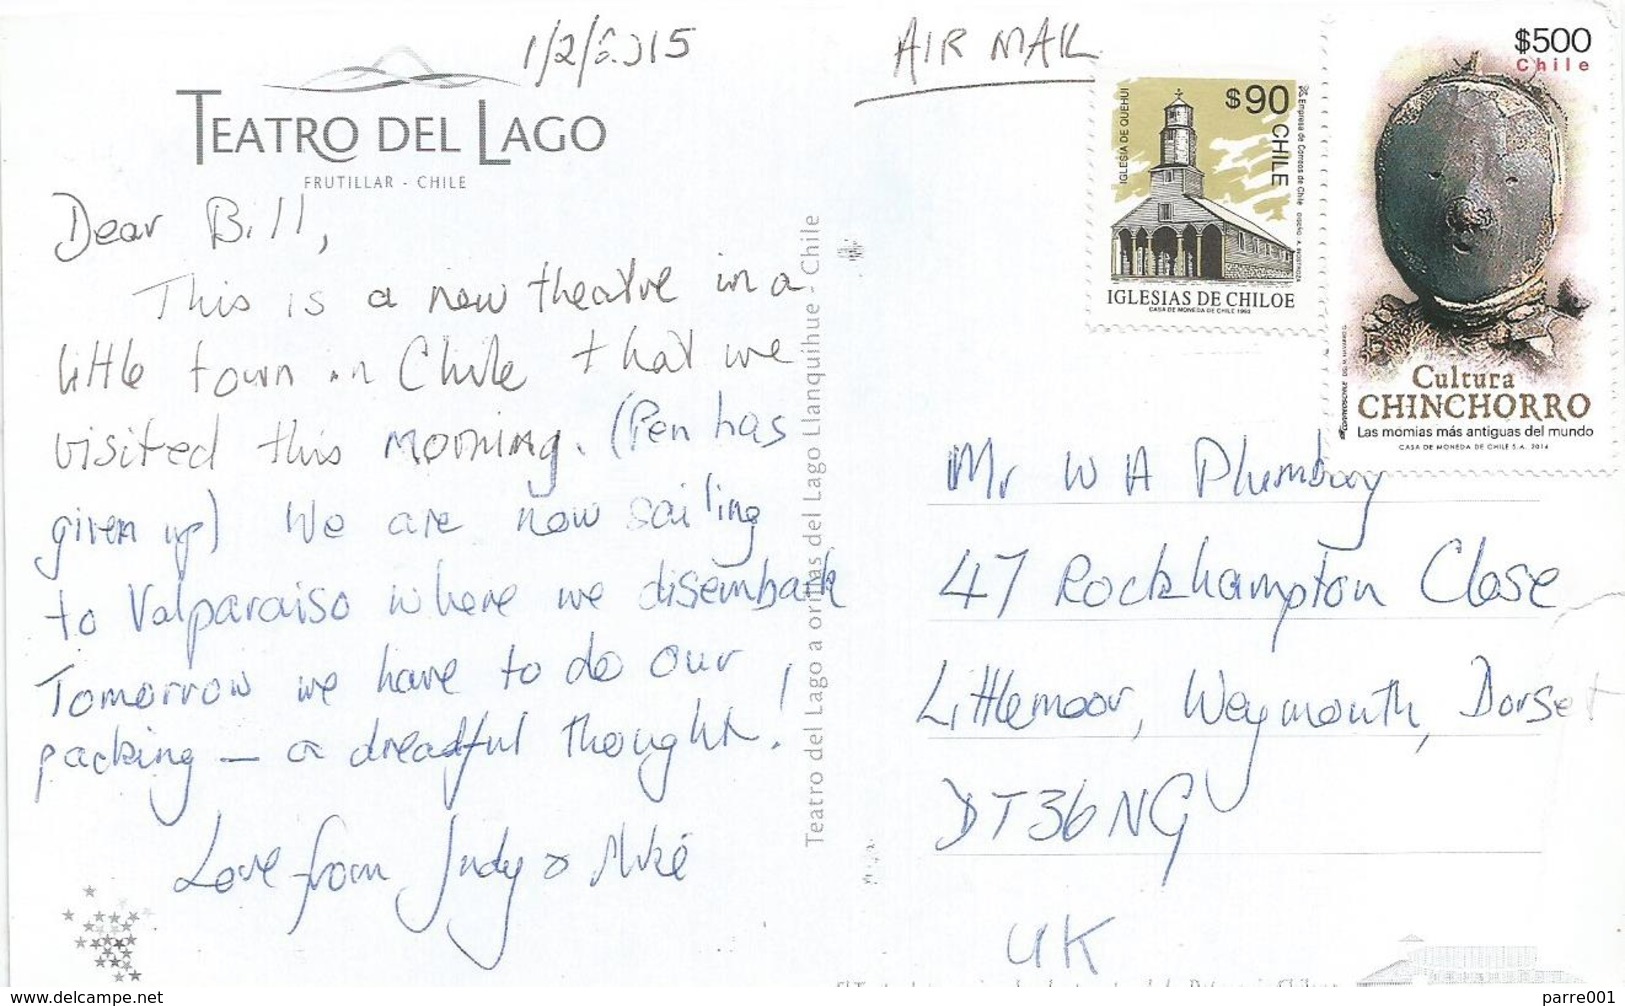 1/2/2015
AIR MAIL
TEATRO DEL LAGO
FRUTILLAR - CHILE
Dear Bill,
This is a new theatre in a
little town in Chile that we
visited this morning. (Pen has
given up) We are now sailing
to Valparaiso where we disembark
Tomorrow we have to do our
packing — a dreadful thought!
Love from Judy & Mike
Teatro del Lago a orillas del Lago Llanquihue - Chile
$90
CHILE
IGLESIA DE QUEHUI
Empresa de Correos de Chile
IGLESIAS DE CHILOE
CASA DE MONEDA DE CHILE 1993
$500
Chile
Cultura
CHINCHORRO
Las momias más antiguas del mundo
CASA DE MONEDA DE CHILE S.A. 2014
CORREOSCHILE
Mr W A Plumbay
47 Rockhampton Close
Littlemoor, Weymouth, Dorset
DT36NG
UK
parre001